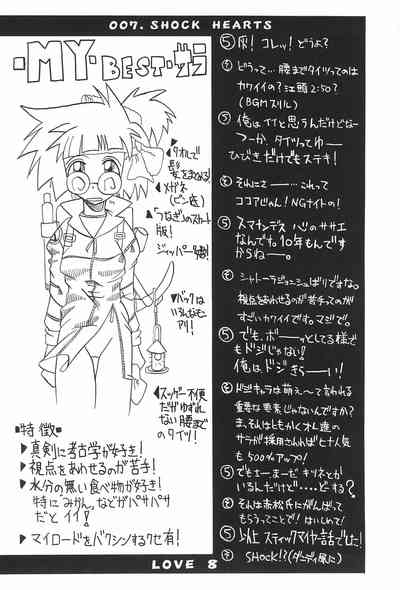 007. SHOCK HEARTS
・MY・BEST・サラ
◀タオルで
髪をまとめる!
◀メガネ
(ビン底)
◀「つなぎ」のスカート
版!
ジッパー
◀バックは
いろんなモノ
アリ!
◀スッゲー不便
だがゆずれ
ない腰まで
のタイツ!
・特徴・
▶真剣に考古学が好き!
▶視点をあわせるのが苦手!
▶水分の無い食べ物が好き!
特にみかん、などがパサパサ
だとイイ!
▶マイロードをバクシンするクセ有!
⑤灰!コレッ!どうよ?
どうって…腰までタイツってのは
カワイイの?江頭2:50?
(BGMスリル)
⑤俺はイイと思うんだけどなー
つーか、タイツってゆー
ひびきだけでもステキ!
それに2ー…これって
ココアじゃん!NGナイトの!
⑤スマナンデス
なんですっ。10年もんです
からねー。
ばりですな。
視点をあわせるのが苦手ってのが
すごいカワイイです。マジで。
⑤でも、ボーッとしてる様で
もドジじゃない!
俺はドジきらーい!
ドジキャラは萌え〜て言われる
重要な要素じゃないんですか?
ま、それはともかくオレ達の
サラが採用されればヒナ人気
も500%アップ!
⑤でもすーまーだキツネとか
いるんだけど‥‥どーする?
それは赤松氏にがんばって
もらうってことで!はいしめて!
⑤以上スティックマイヤー話でした!
SHOCK!?(ダニディ風に)
LOVE 8